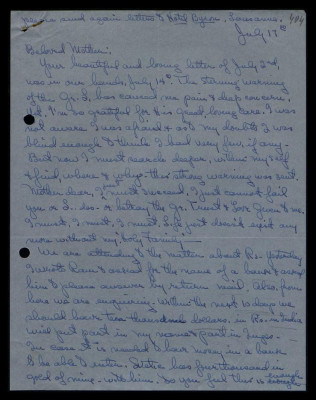 again letters to Hotel Byron, Lausanne. 494
July 15th
Beloved Mother:
Your beautiful and loving letter of July 2nd,
was in our hands, July 14th. The strong warning
of the Gr. L, has caused me pain & deep concern,
yet, I'm so grateful for his good, loving care. I was
not aware I was afraid & as to my doubts I was
blind enough to think I had very few, if any—
But now I must search deeper, within myself
& find, where & why this strong warning was sent.
Mother dear, I must succeed, I just cannot fail
you & L. des- or betray the Gr. Trust & Love given to me.
I must, I must, I must. Life just doesn't exist any
more without my holy Family.
We are attending to the matter about Re. Yesterday
I wrote Dan & asked for the name of a bank & asked
him to please answer by return mail. Also, from
here we are enquiring. Within the next 10 days we
should have ten thousand dollars, in Re. in India
will put part in my name & part in
In case it is needed to have money in a bank
to be able to enter. Santa has four thousand in
gold of mine with him. Do you feel this is enough